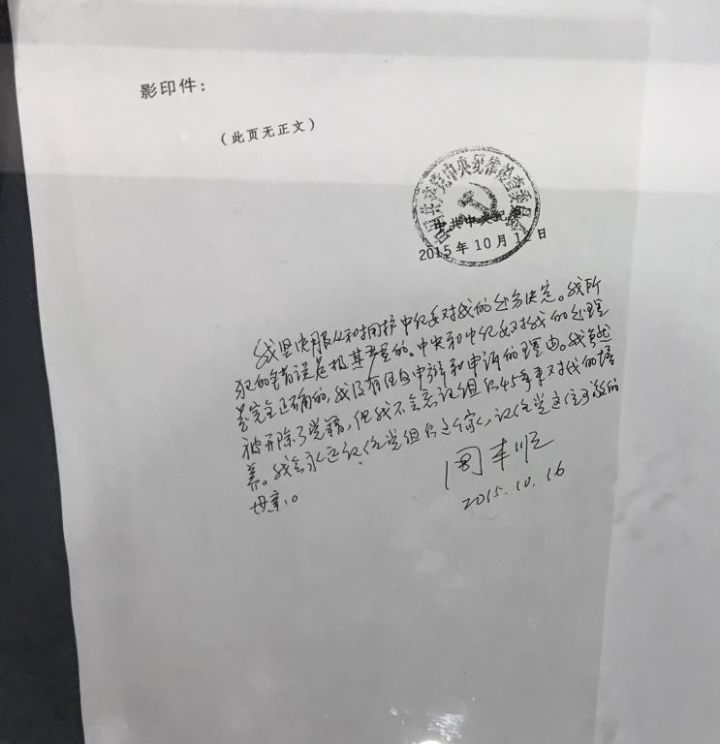 影印件：
（此页无正文）
中国共产党中央纪律检查委员会
中共中央纪委
2015年10月12日
我坚决服从和拥护中纪委对我的处分决定。我所
犯的错误是极其严重的。中央和中纪委对我的处理
是完全正确的，我没有任何申辩和申诉的理由。我虽然
被开除了党籍，但我不会忘记组织45年来对我的培
养。我会永远记住党组织这个家，记住党这位可敬的
母亲。
2015.10.16